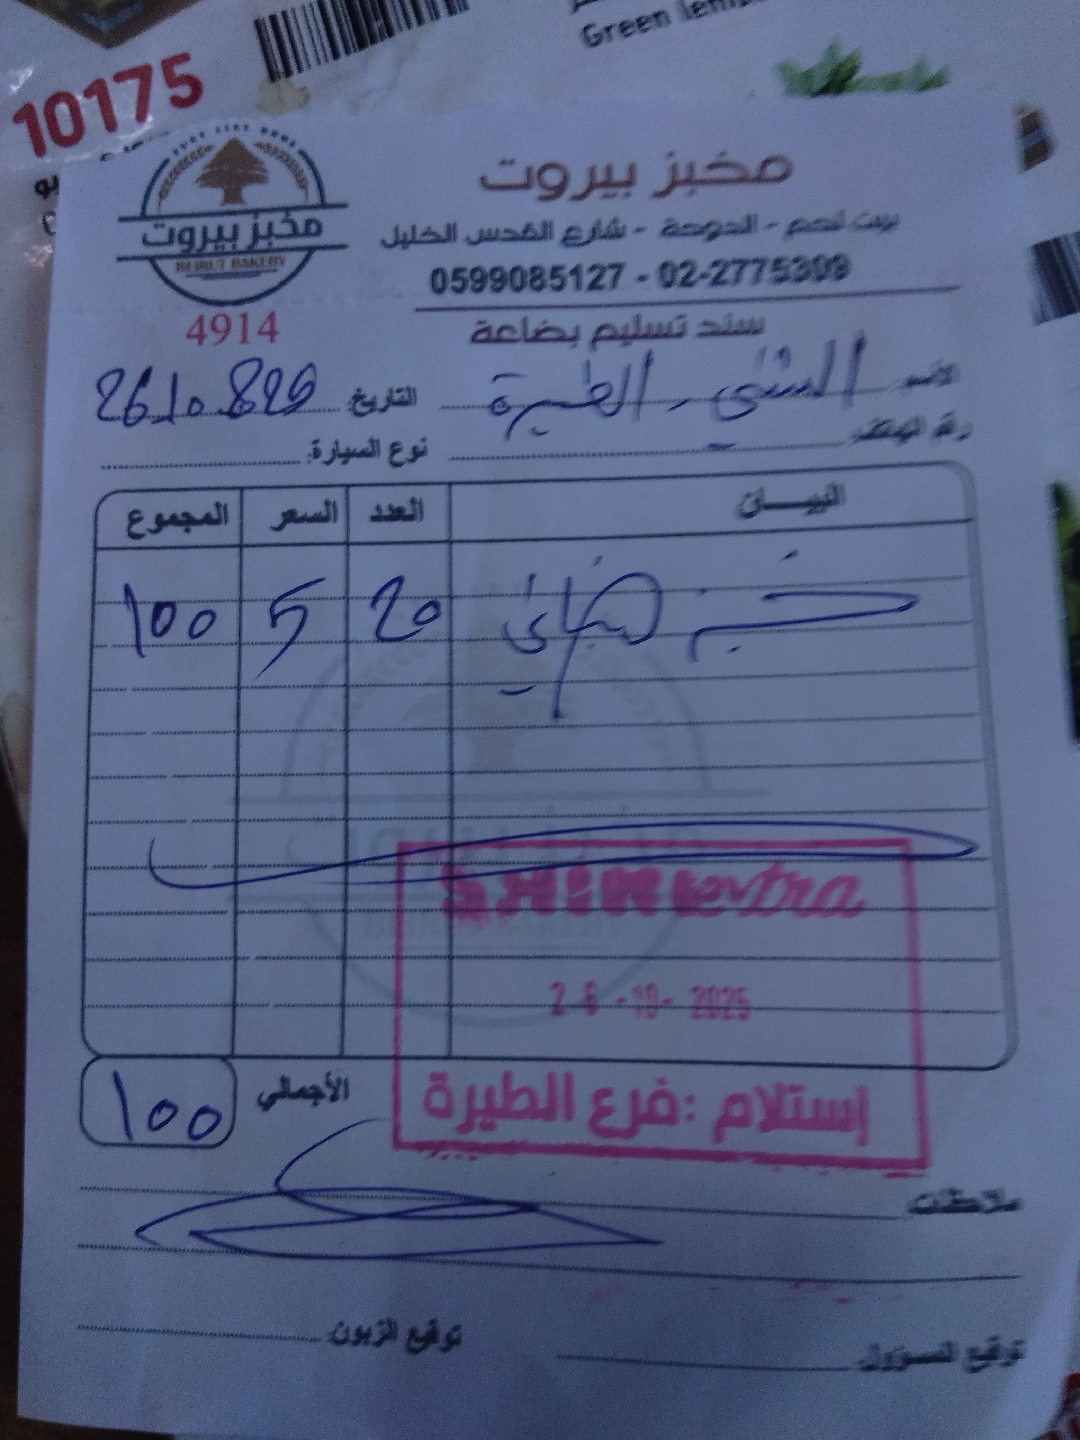 Green
10175
مخبز بيروت
BEIRUT BAKERY
مخبز بيروت
بيت لحم - الدوحة - شارع القدس الخليل
0599085127 - 02-2775309
4914
سند تسليم بضاعة
الاسم الشني - الطيرة
التاريخ
رقم الهاتف
نوع السيارة
البيـــان العدد السعر المجموع
خبز 20 5 100
extra
26-10-2025
إستلام: فرع الطيرة
الأجمالي 100
ملاحظات
توقيع المسؤول
توقيع الزبون